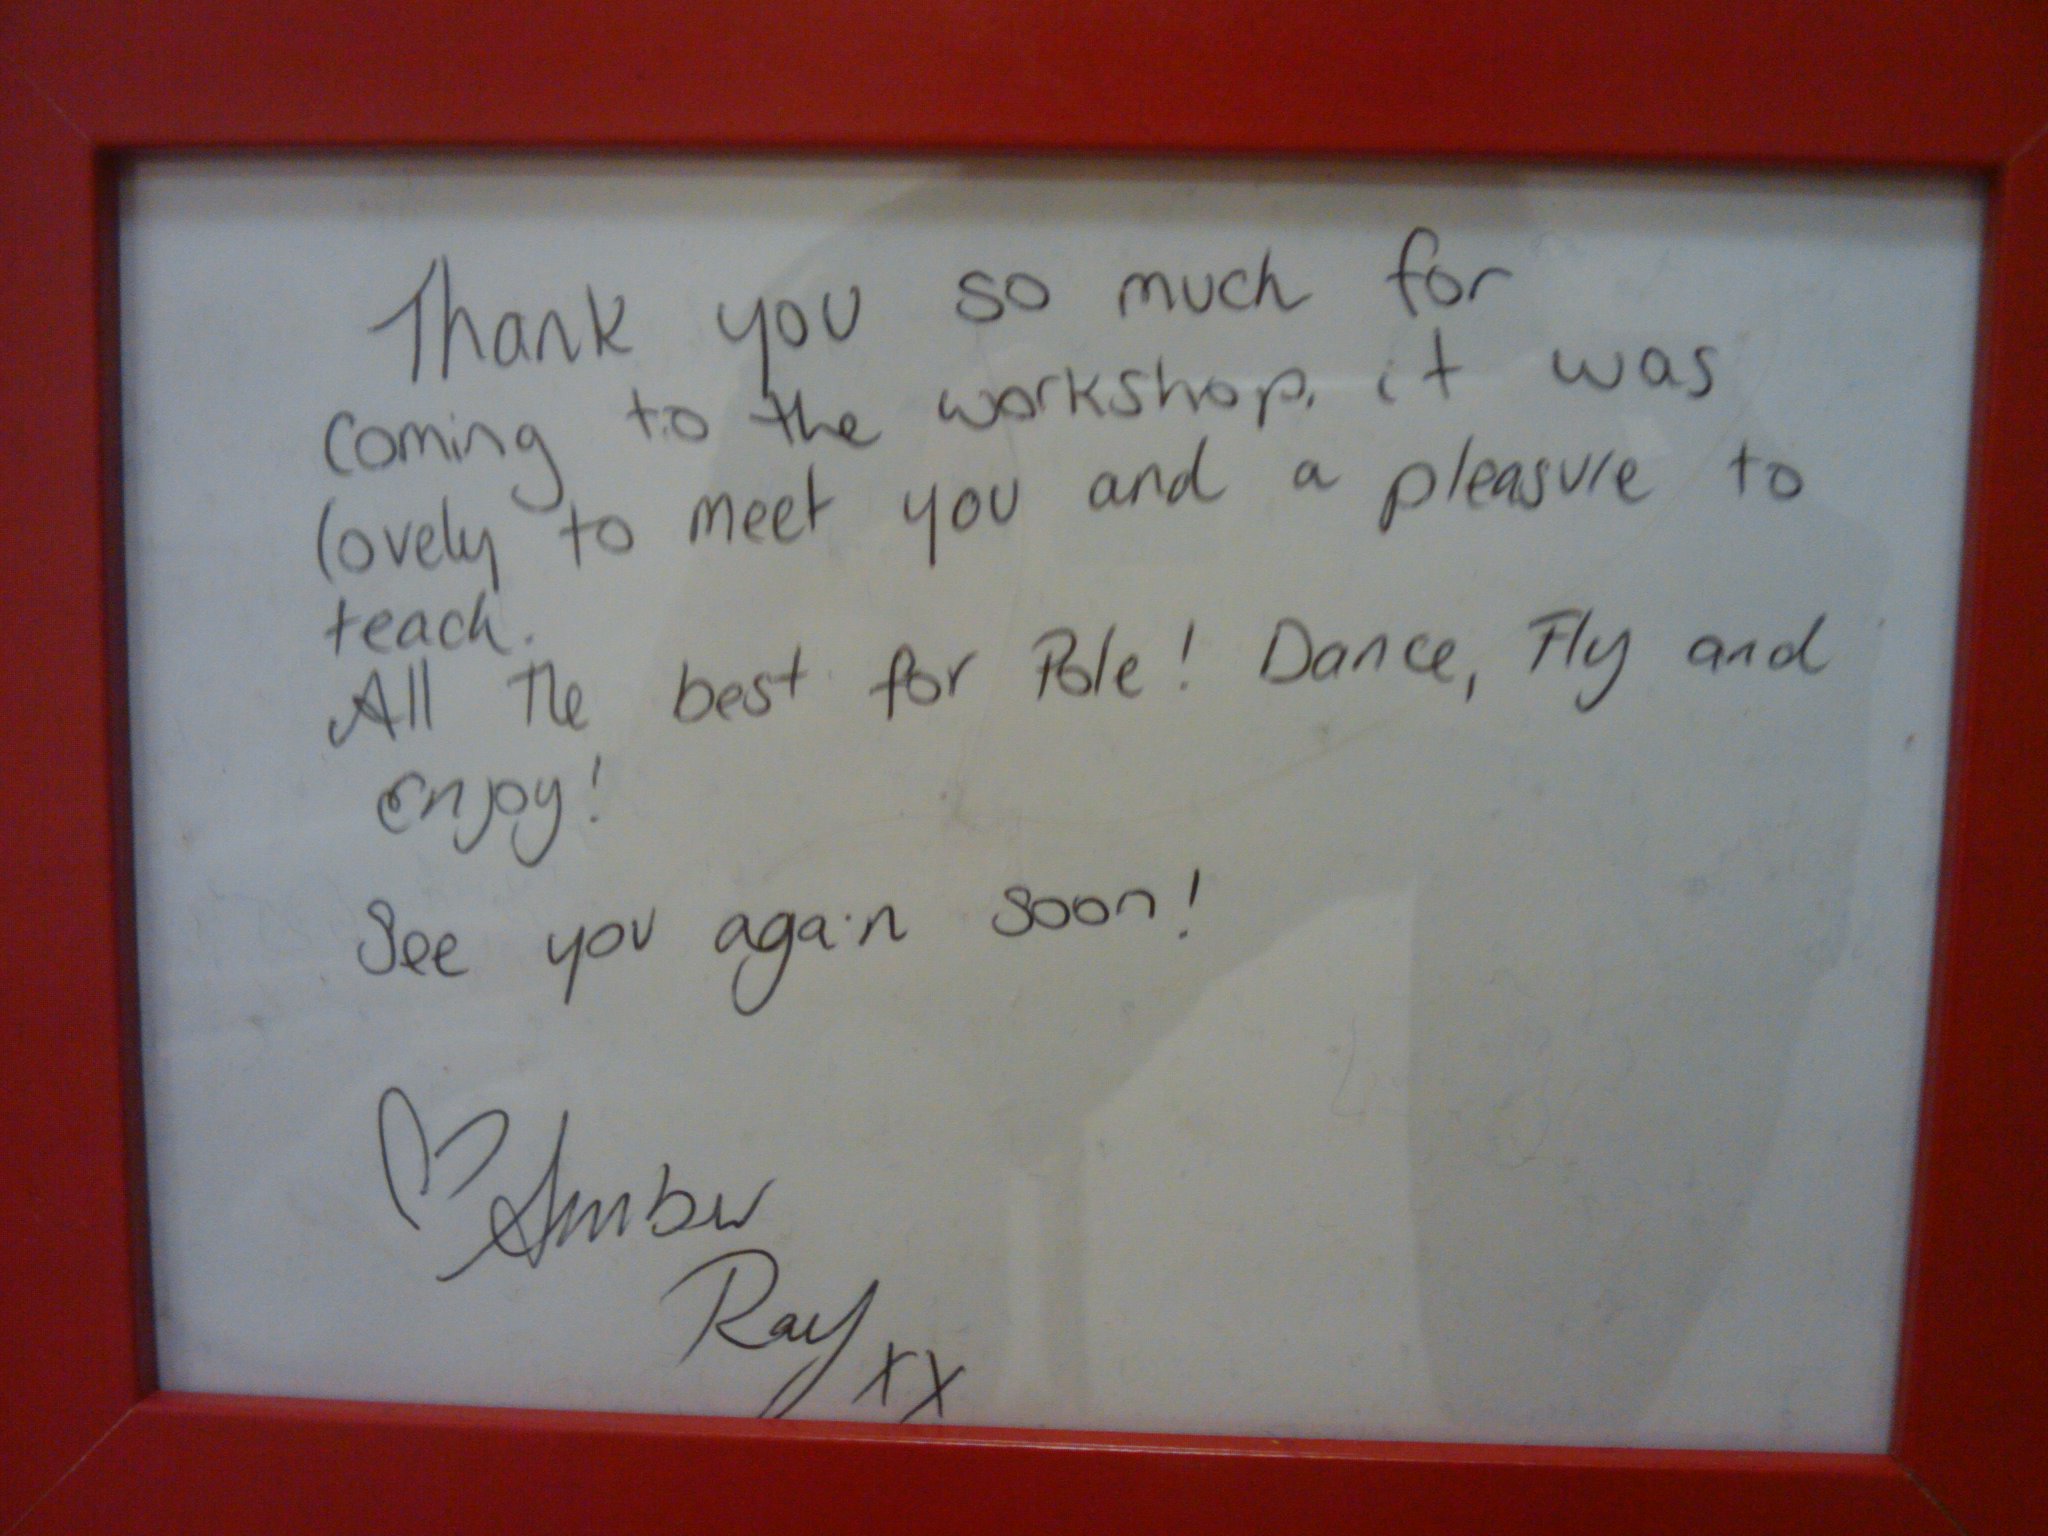 Thank you so much for
coming to the workshop. it was
lovely to meet you and a pleasure to
teach.
All The best for Pole! Dance, Fly and
enjoy!
See you again soon!
♡ Amber
Ray xx